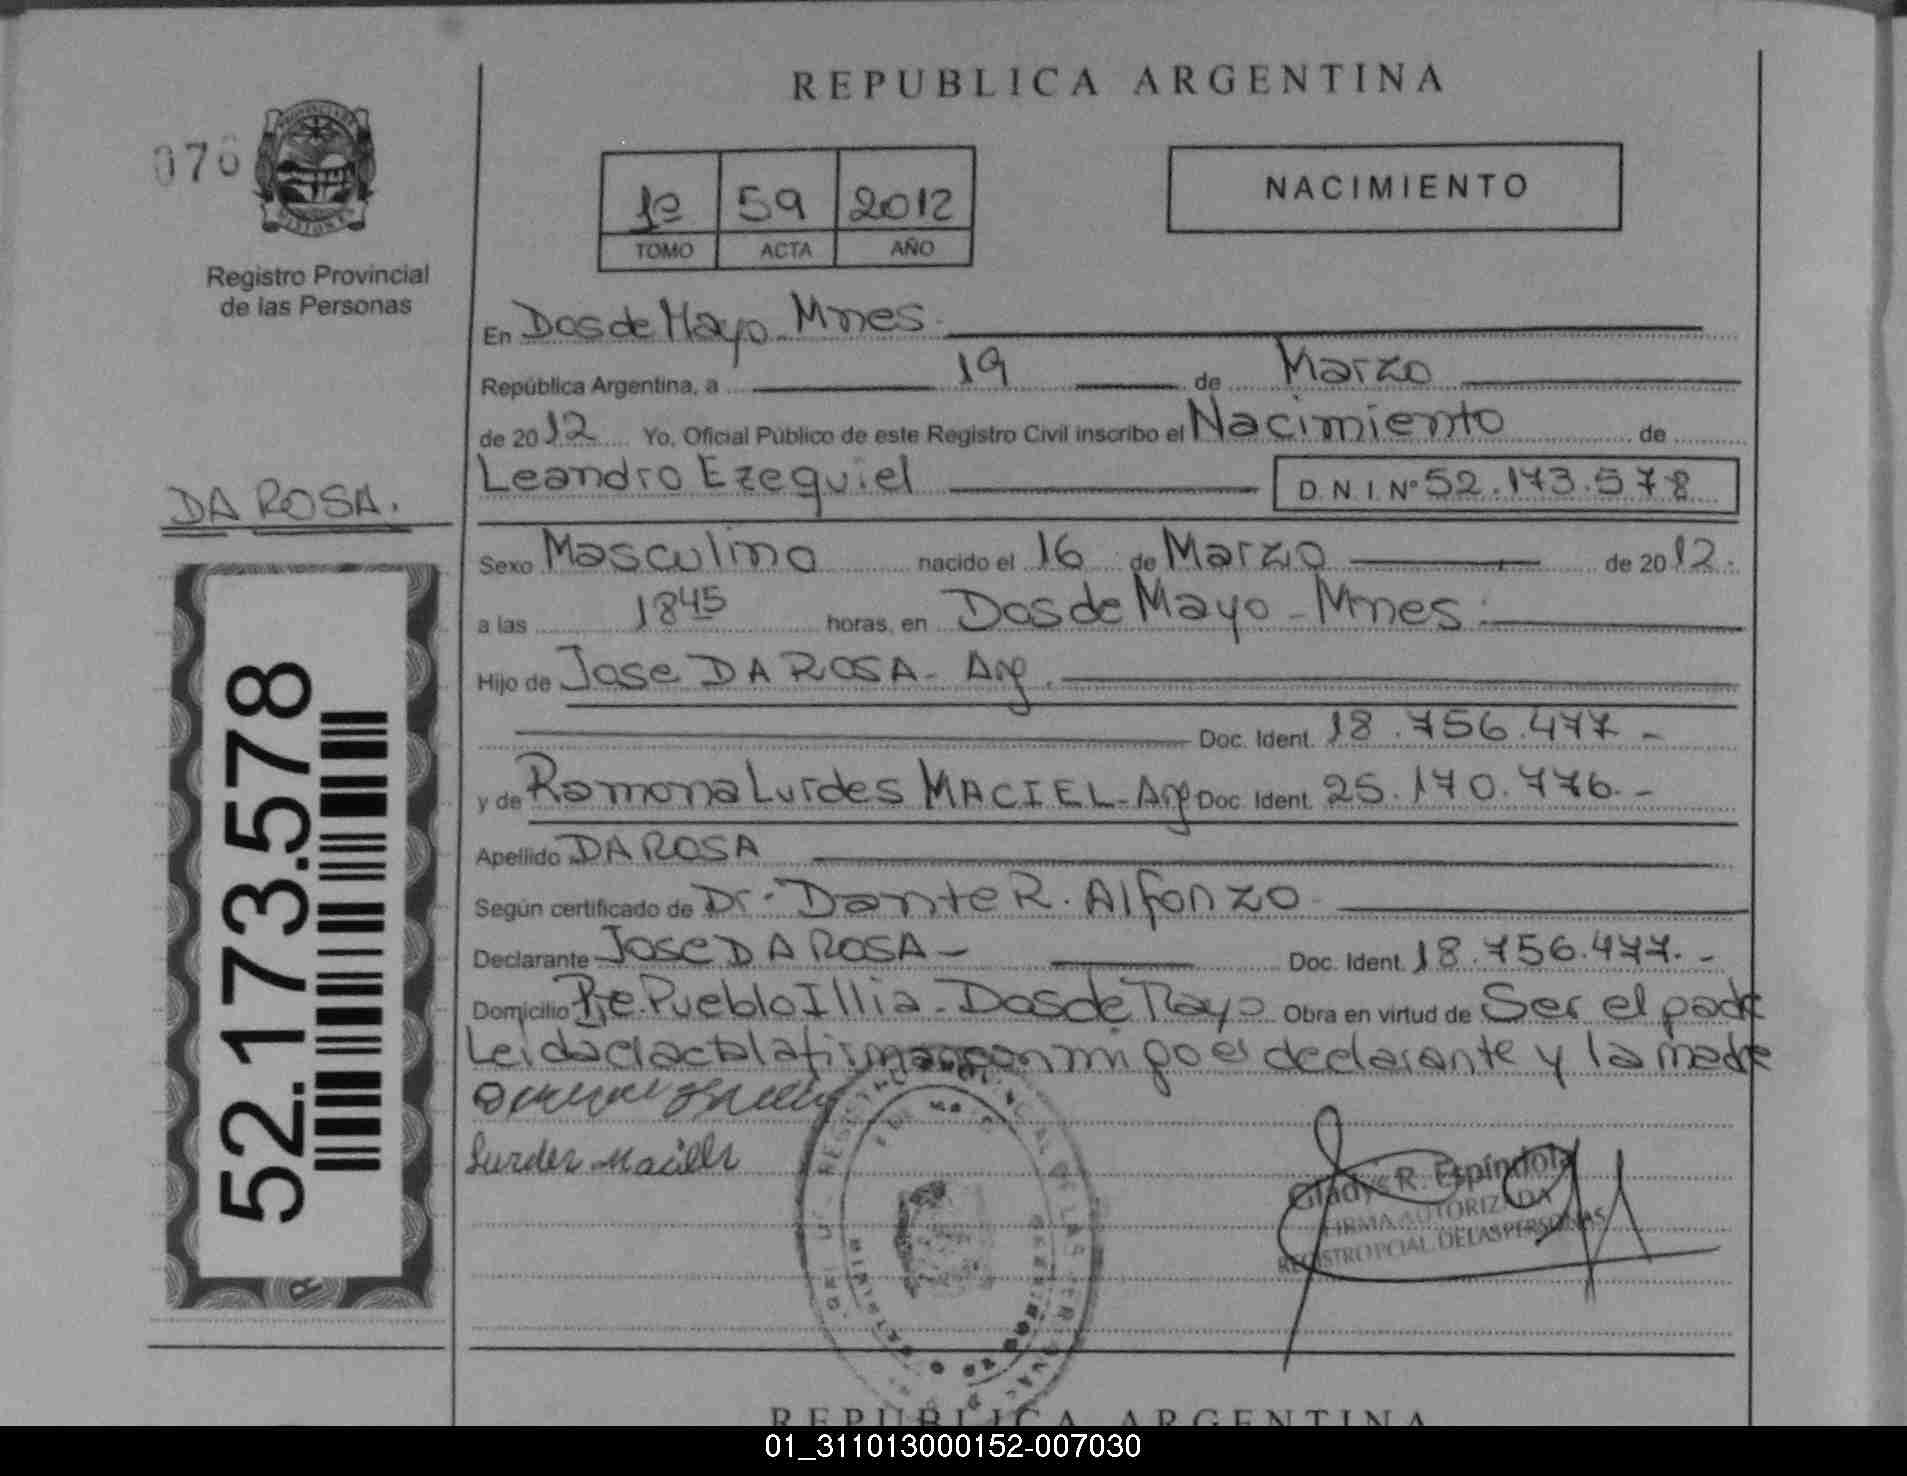 REPUBLICA ARGENTINA
076
Registro Provincial
de las Personas
1º 59 2012
TOMO ACTA AÑO
NACIMIENTO
En Dos de Mayo - Mnes.
República Argentina, a 19 de Marzo
de 2012 Yo, Oficial Público de este Registro Civil inscribo el Nacimiento de
Leandro Ezequiel D.N.I.Nº 52.173.578
DA ROSA.
Sexo Masculino nacido el 16 de Marzo de 2012.
a las 18 45 horas, en Dos de Mayo - Mnes.
Hijo de Jose DA ROSA - Arg.
Doc. Ident. 18.756.477 -
y de Ramona Lurdes MACIEL - Arg Doc. Ident. 25.170.776. -
Apellido DA ROSA
Según certificado de Dr. Dante R. Alfonzo
Declarante Jose DA ROSA - Doc. Ident. 18.756.477. -
Domicilio Pje. Pueblo Illia - Dos de Mayo Obra en virtud de Ser el padre
Leida el acta la firman con migo el declarante y la madre
52.173.578
Gladys R. Espíndola
FIRMA AUTORIZADA
REGISTRO PCIAL. DE LAS PERSONAS
REPUBLICA ARGENTINA
01_311013000152-007030